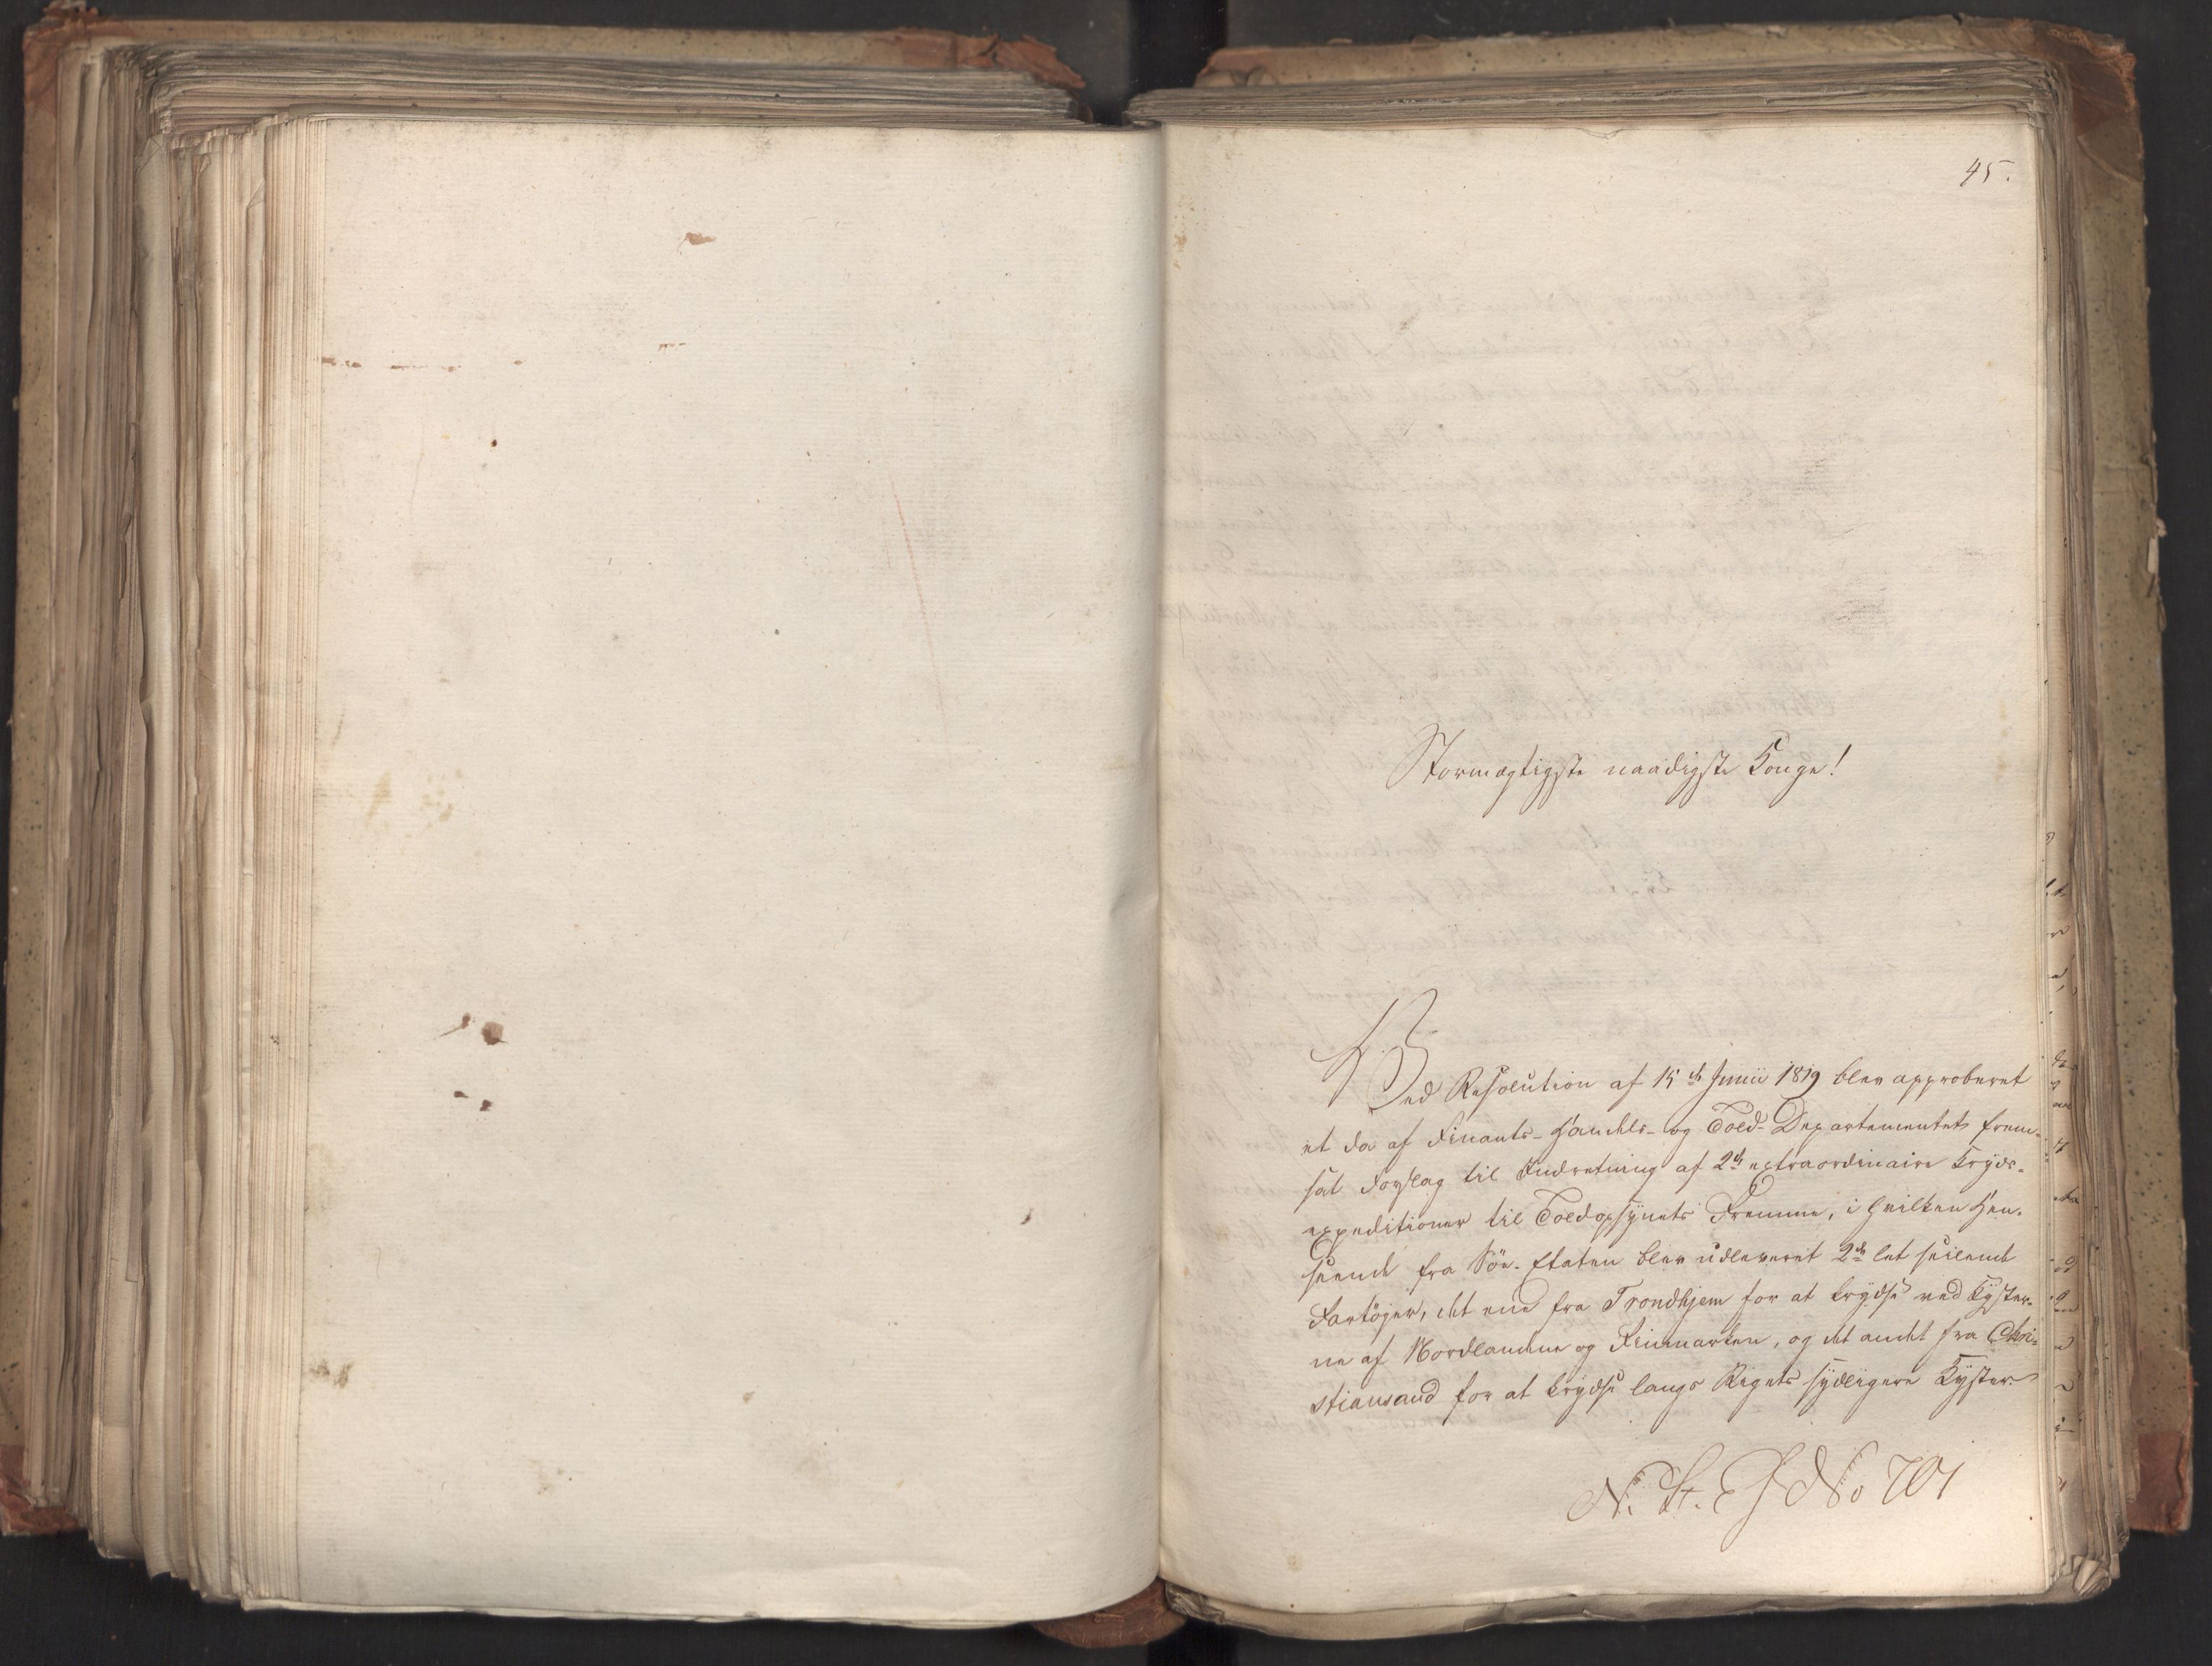 45.
Stormægtigste naadigste Konge!
Ved Resolution af 15de Junii 1819 blev approberet
et da af Finants- Handels- og Told-Departementet frem-
sat Forslag til Indretning af 2de extraordinaire Kryds-
expeditioner til Toldopsynets Fremme, i hvilken Hen-
seende fra Söe-Etaten blev udleveret 2de let seilende
Fartöjer, det ene fra Trondhjem for at krydse ved Kyster-
ne af Nordlandene og Finmarken, og det andet fra Chri-
stiansand for at krydse langs Rigets sydligere Kyster
N. St. E J No 701